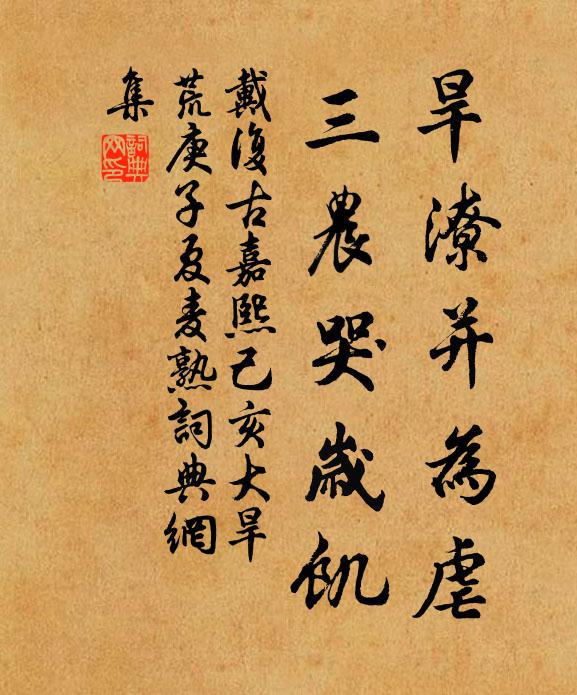 旱潦并為虐
三農哭歲飢
戴復古嘉熙己亥大旱
荒庚子夏麦熟詞典網
集
詞典網印